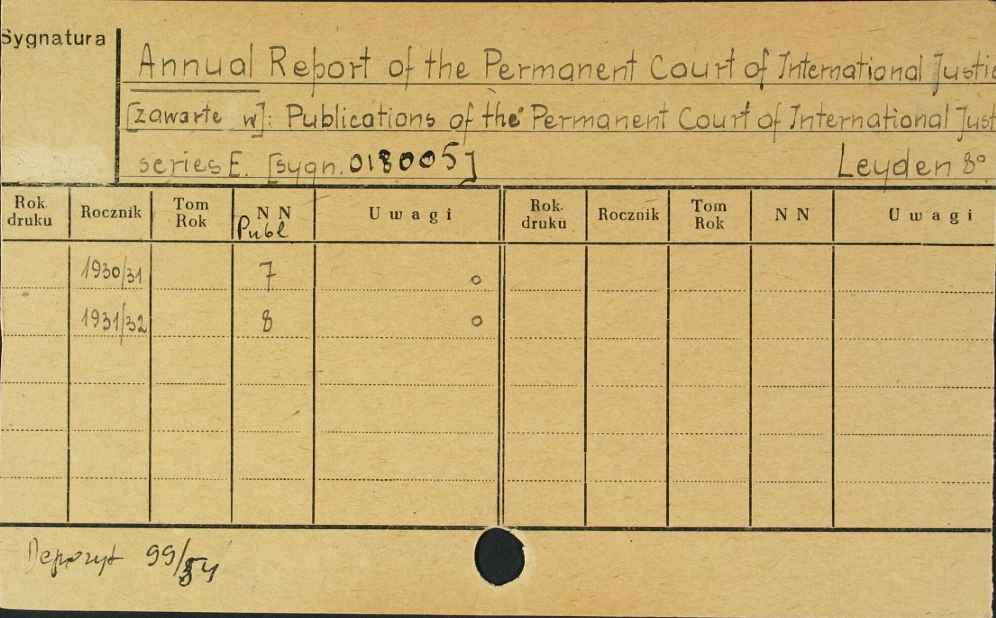 Sygnatura
Annual Report of the Permanent Court of International Justic
[zawarte w]: Publications of the Permanent Court of International Just
series E. [sygn. 018005] Leyden 8°
Rok druku Rocznik Tom Rok NN Publ Uwagi Rok druku Rocznik Tom Rok NN Uwagi
1930/31 7 o
1931/32 8 o
Depozyt 99/54